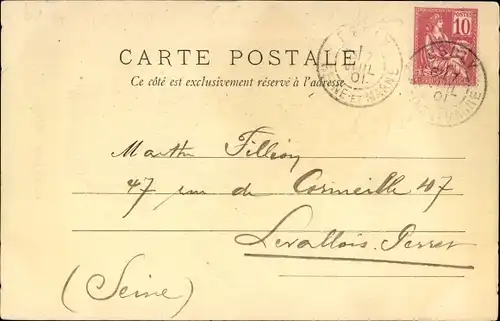 CARTE POSTALE
Ce côté est exclusivement réservé à l'adresse
10
JUIL
01
SEINE-ET-MARNE
Marthe Fillion
47 rue de Cormeille 47
Levallois-Perret
(Seine)